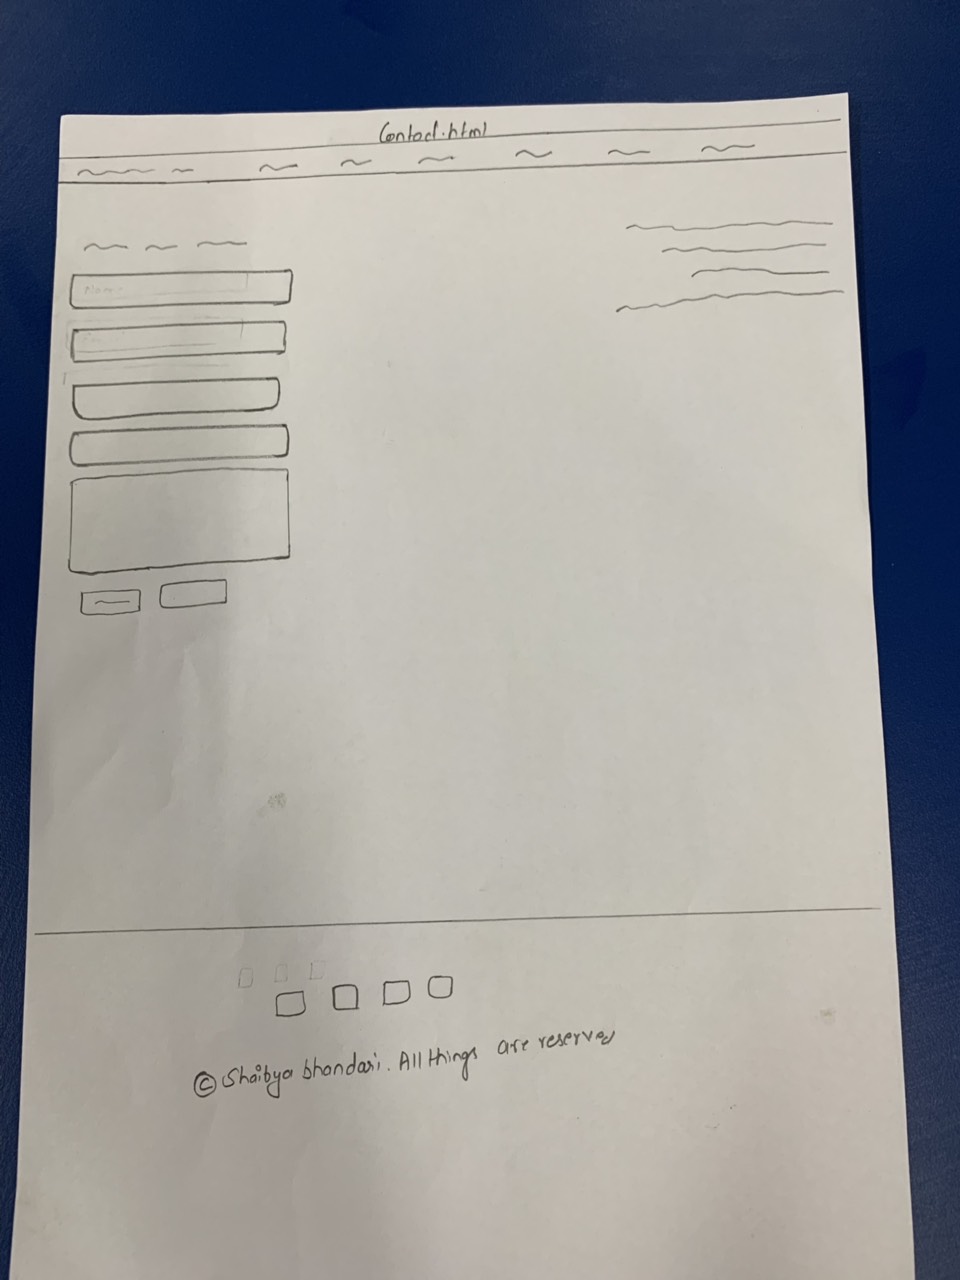 Contact.html
Name
© Shaibya bhandari. All things are reserved